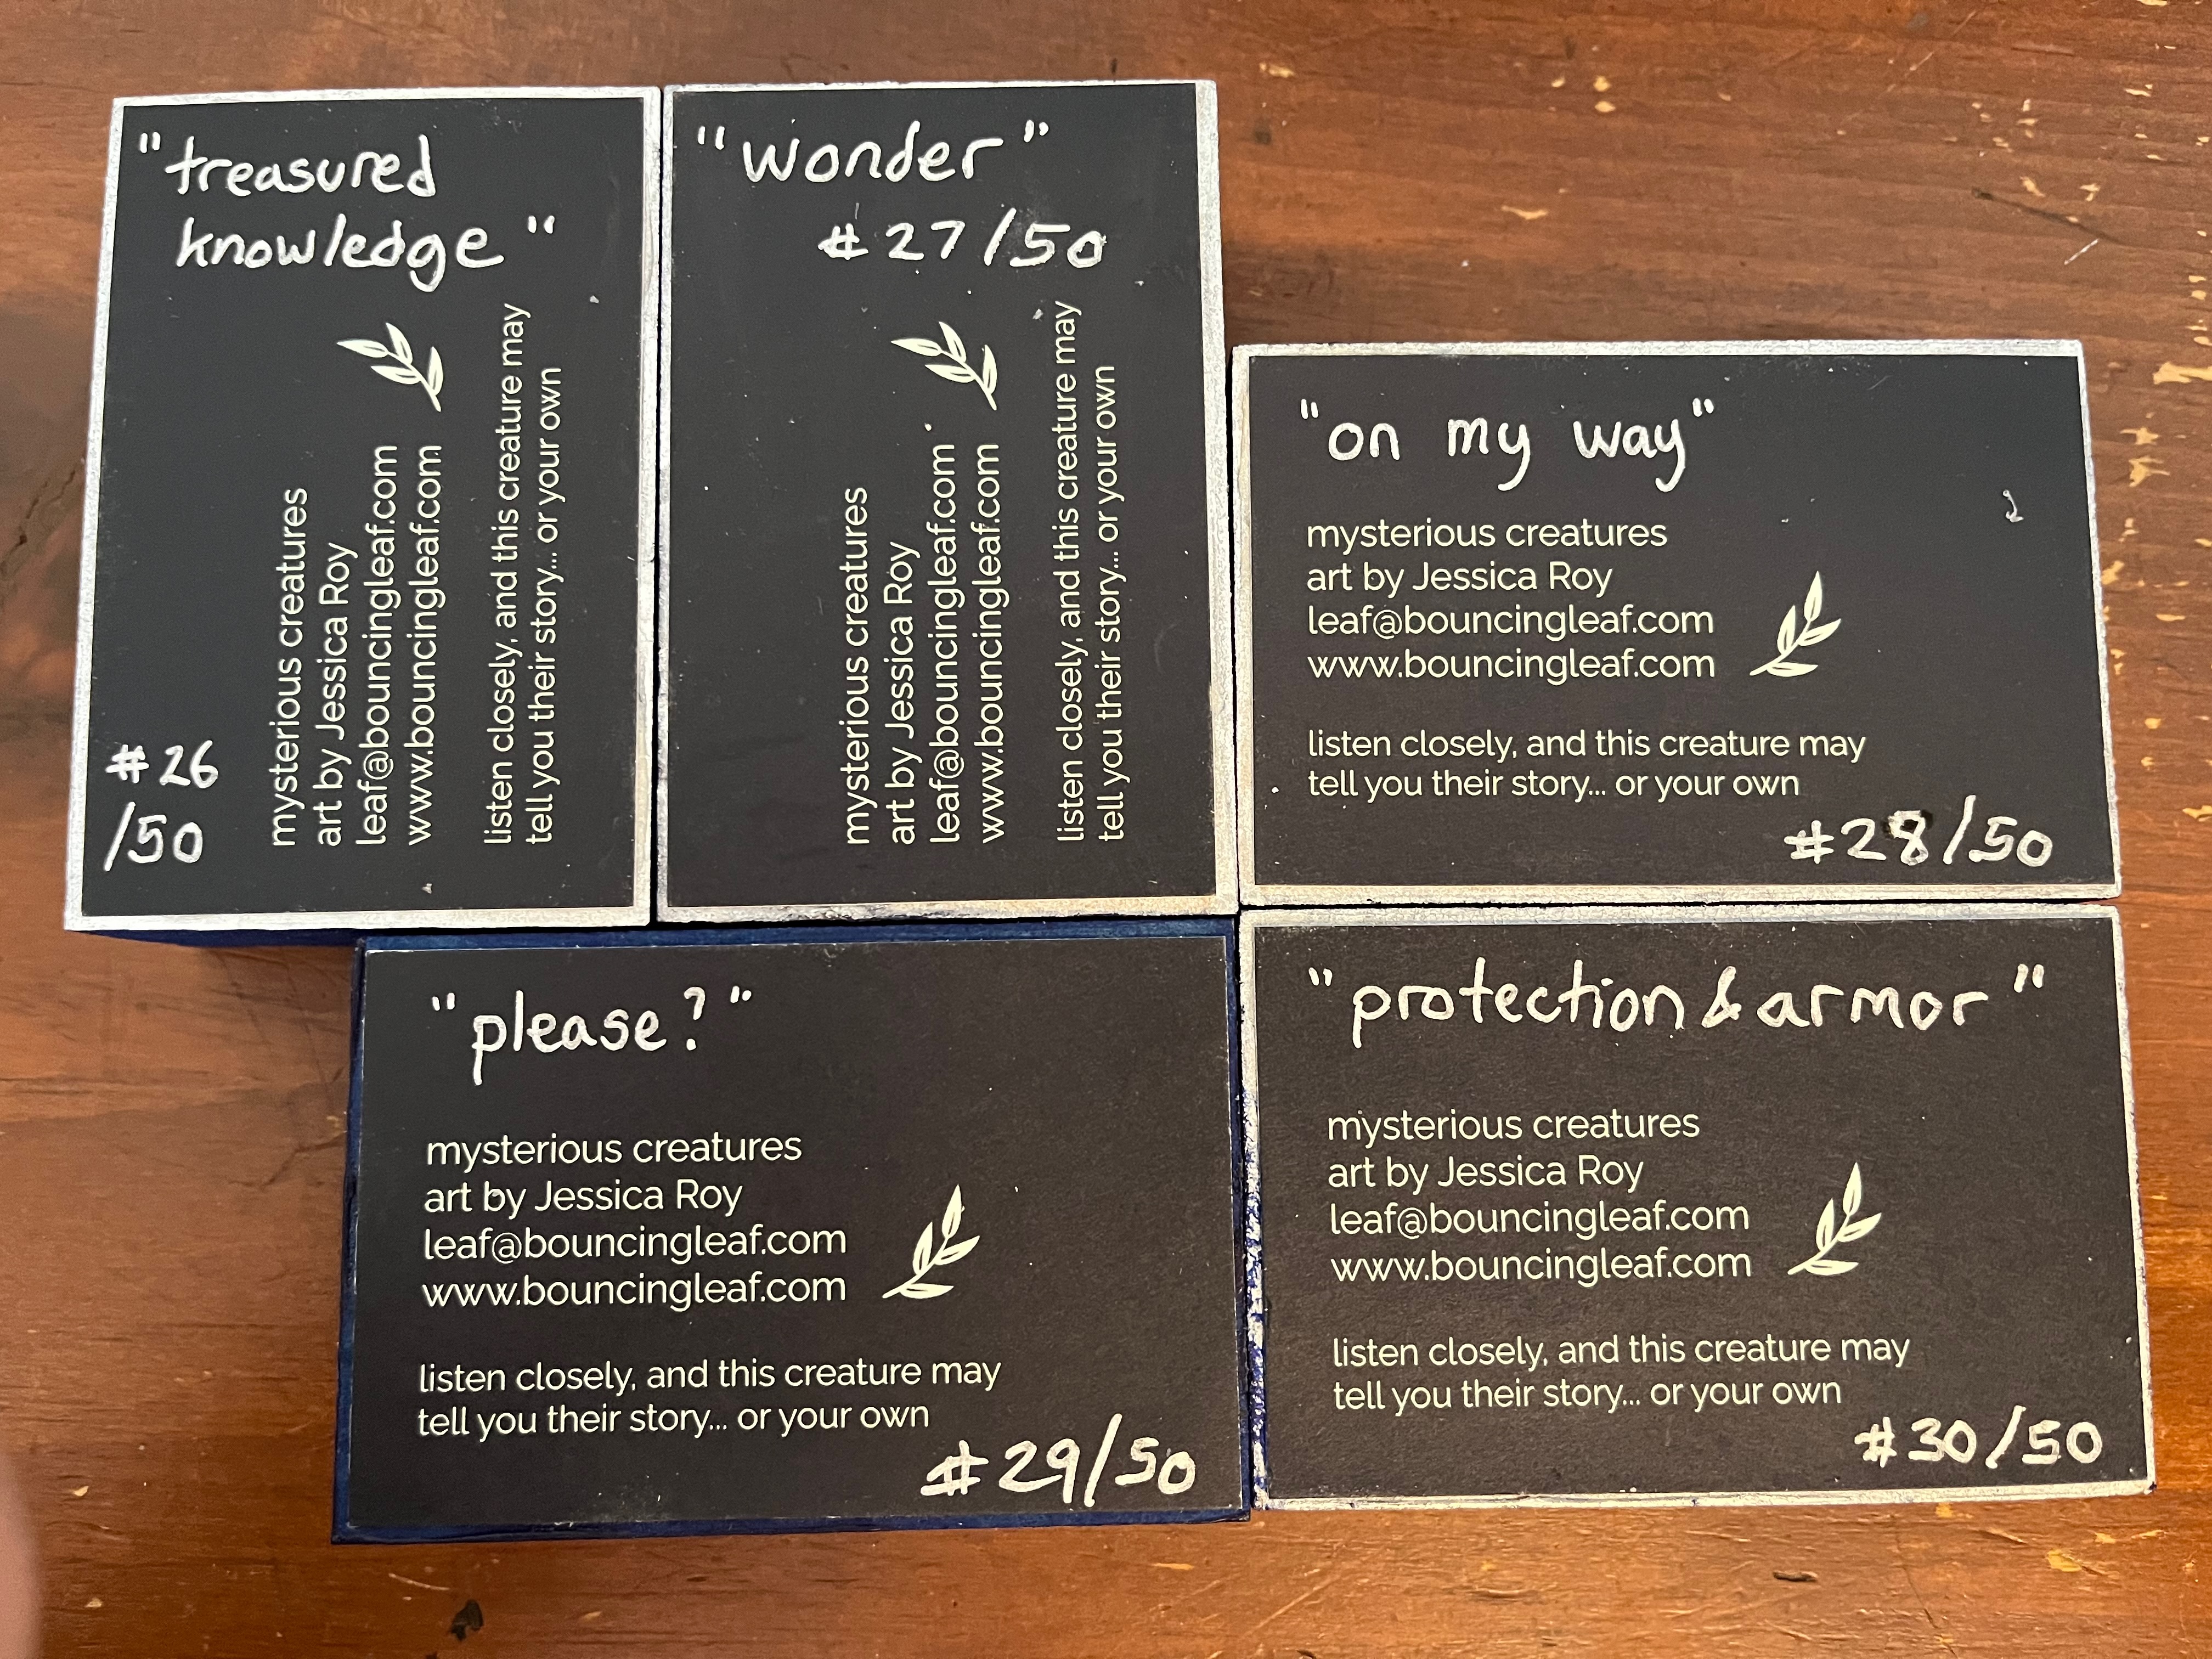 "treasured
knowledge"
#26
/50
mysterious creatures
art by Jessica Roy
leaf@bouncingleaf.com
www.bouncingleaf.com
listen closely, and this creature may
tell you their story... or your own
"wonder"
#27/50
mysterious creatures
art by Jessica Roy
leaf@bouncingleaf.com
www.bouncingleaf.com
listen closely, and this creature may
tell you their story... or your own
"on my way"
mysterious creatures
art by Jessica Roy
leaf@bouncingleaf.com
www.bouncingleaf.com
listen closely, and this creature may
tell you their story... or your own
#28/50
"please?"
mysterious creatures
art by Jessica Roy
leaf@bouncingleaf.com
www.bouncingleaf.com
listen closely, and this creature may
tell you their story... or your own
#29/50
"protection & armor"
mysterious creatures
art by Jessica Roy
leaf@bouncingleaf.com
www.bouncingleaf.com
listen closely, and this creature may
tell you their story... or your own
#30/50